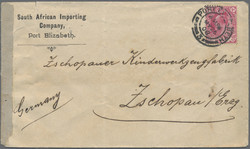 South African Importing
Company,
Port Elizabeth.
Zschopauer Kinderwerkzeugfabrik
Zschopau/Erzg
Germany